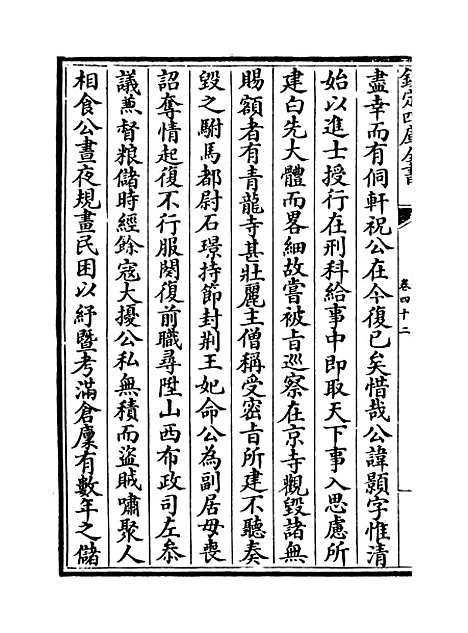 欽定四庫全書
卷四十二
盡幸而有侗軒祝公在今復已矣惜哉公諱顥字惟清
始以進士授行在刑科給事中即取天下事入思慮所
建白先大體而畧細故嘗被㫖巡察在京寺觀毀諸無
賜額者有青龍寺甚壯麗主僧稱受密㫖所建不聽奏
毀之駙馬都尉石璟持節封荆王妃命公為副居母喪
詔奪情起復不行服闋復前職尋陞山西布政司左叅
議兼督粮儲時經餘寇大擾公私無積而盜賊嘯聚人
相食公晝夜規畫民困以紓暨考滿倉廩有數年之儲